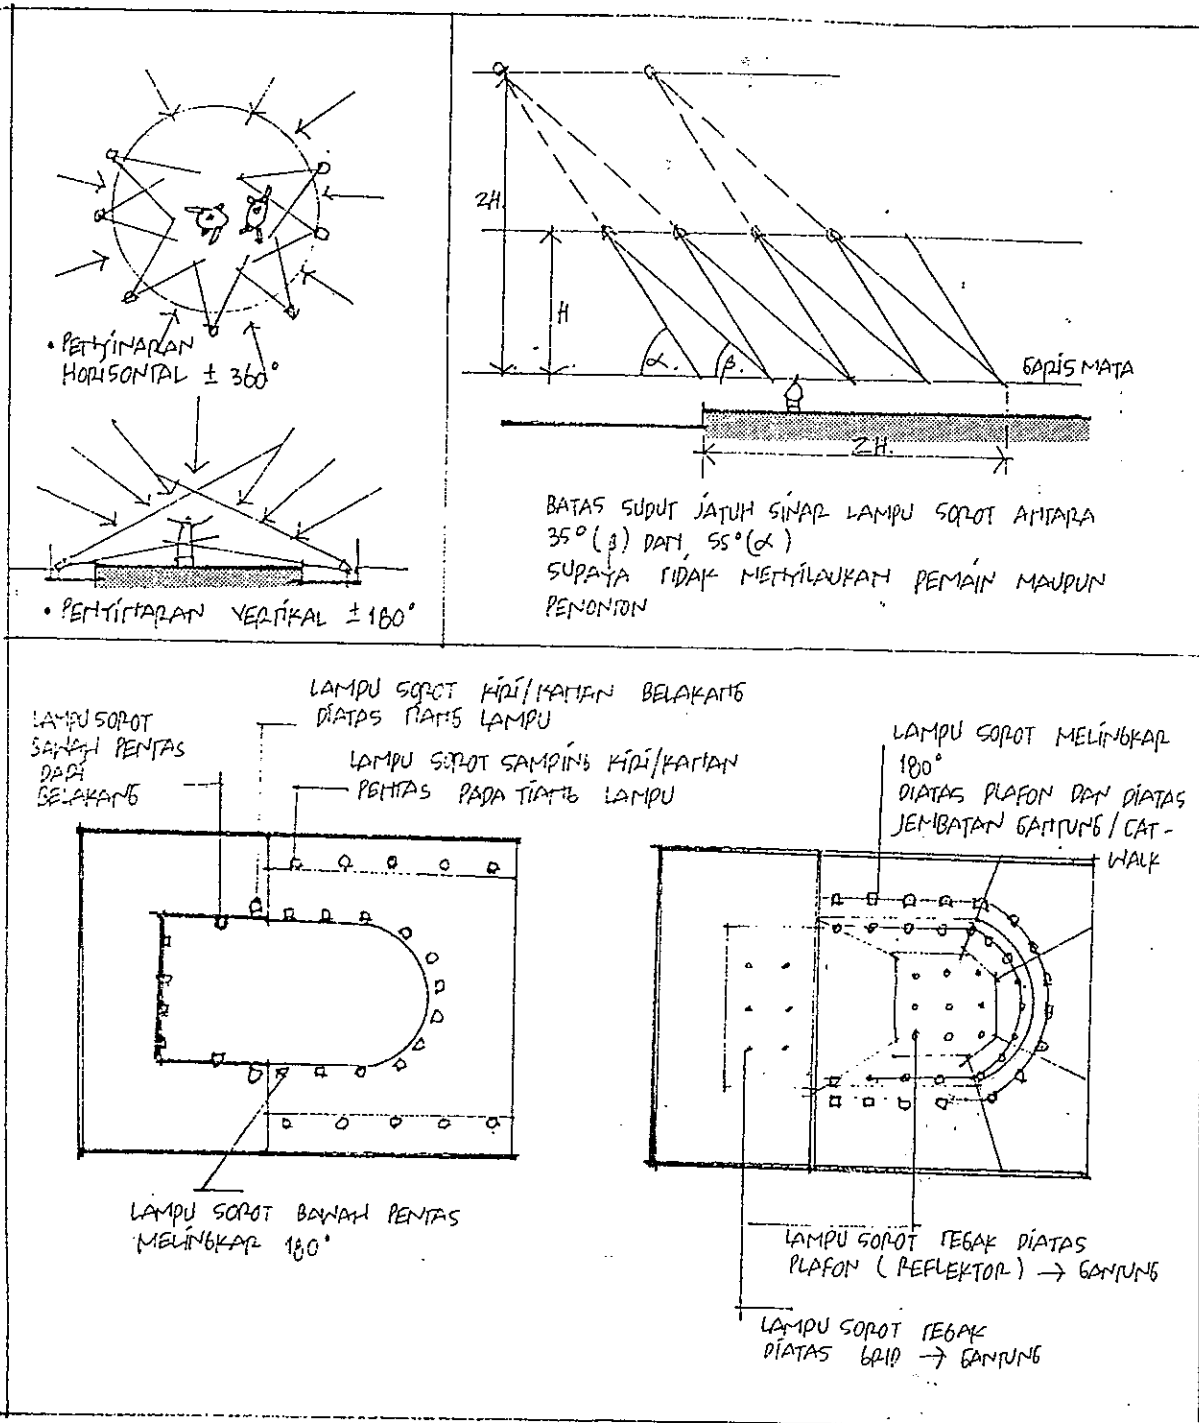 • PENYINARAN
HORISONTAL ± 360°
• PENYINARAN VERTIKAL ± 180°
2H.
H
α.
β.
GARIS MATA
2H.
BATAS SUDUT JATUH SINAR LAMPU SOROT ANTARA
35° (β) DAN 55° (α)
SUPAYA TIDAK MENYILAUKAN PEMAIN MAUPUN
PENONTON
LAMPU SOROT
BAWAH PENTAS
DARI
BELAKANG
LAMPU SOROT KIRI/KANAN BELAKANG
DIATAS TIANG LAMPU
LAMPU SOROT SAMPING KIRI/KANAN
PENTAS PADA TIANG LAMPU
LAMPU SOROT MELINGKAR
180°
DIATAS PLAFON DAN DIATAS
JEMBATAN GANTUNG / CAT-
WALK
LAMPU SOROT BAWAH PENTAS
MELINGKAR 180°
LAMPU SOROT TEGAK DIATAS
PLAFON ( REFLEKTOR ) → GANTUNG
LAMPU SOROT TEGAK
DIATAS GRID → GANTUNG